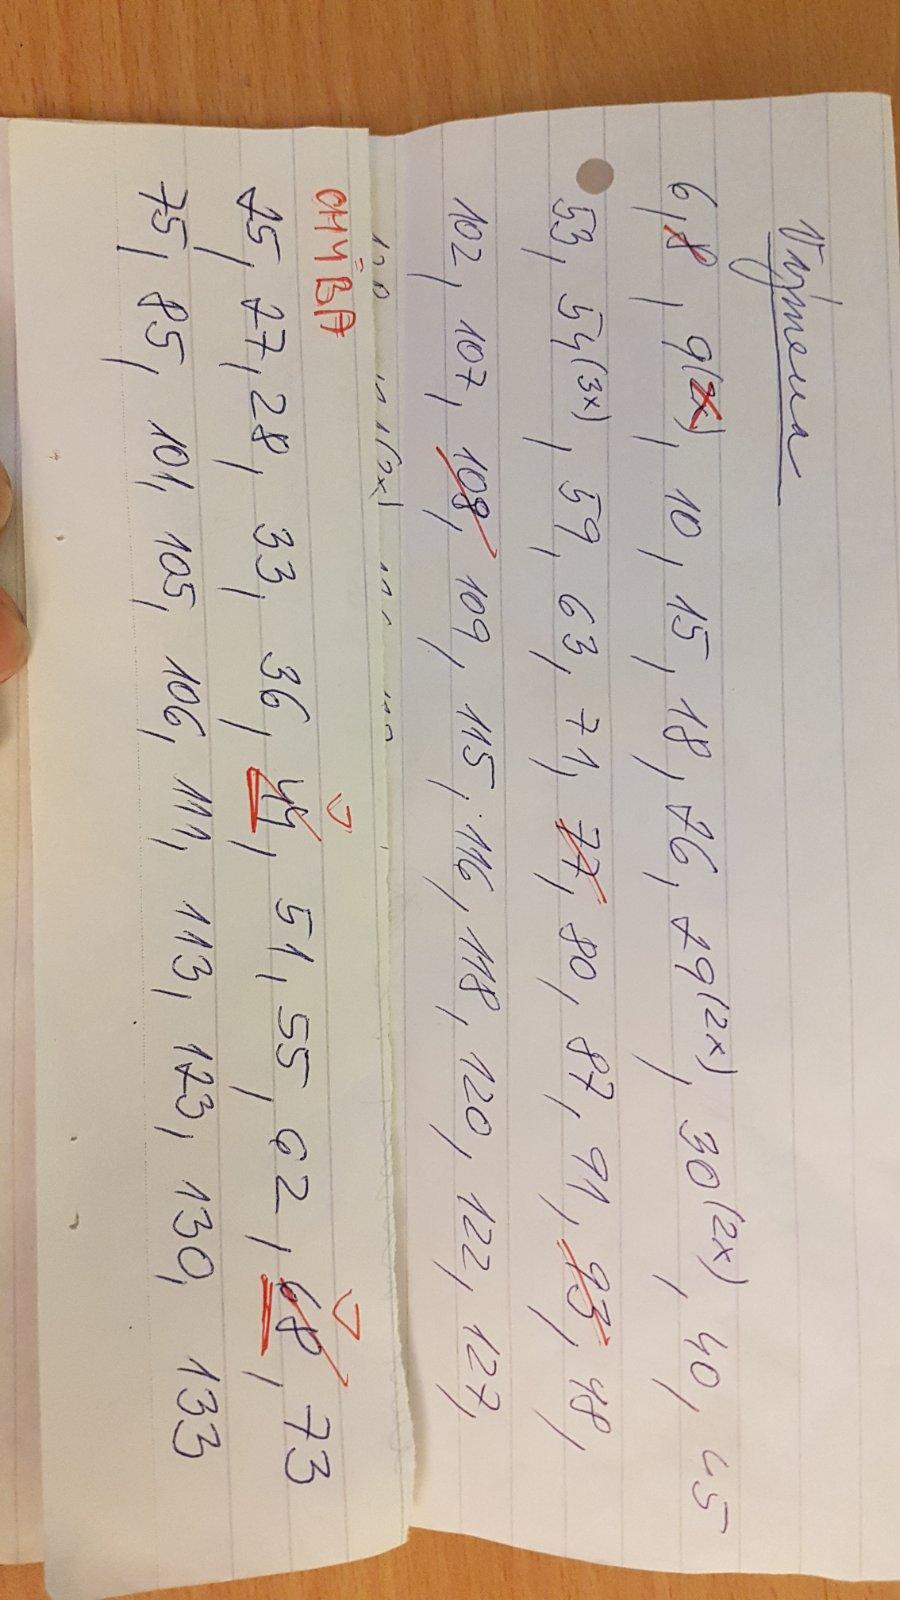 Výměna
6, 8, 9(2x), 10, 15, 18, 26, 29(2x), 30(2x), 40, 45
53, 54(3x), 59, 63, 71, 77, 80, 87, 91, 93, 48,
102, 107, 108, 109, 115, 116, 118, 120, 122, 127,
CHYBA
25, 27, 28, 33, 36, 44, 51, 55, 62, 68, 73
75, 85, 101, 105, 106, 111, 113, 123, 130, 133